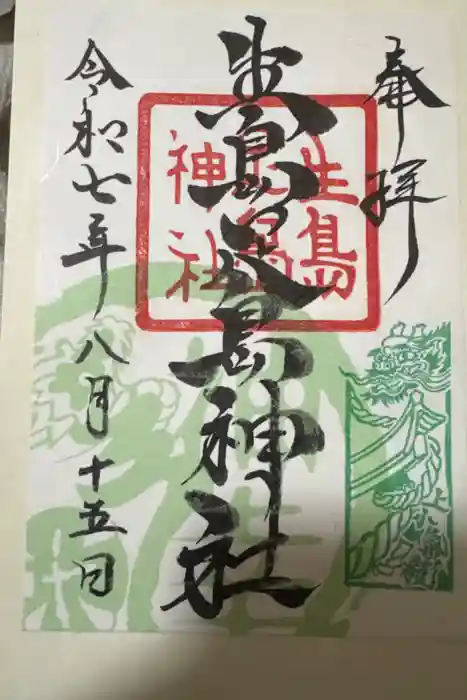 奉拝
生島足島神社
生島
足島
神社
令和七年八月十五日